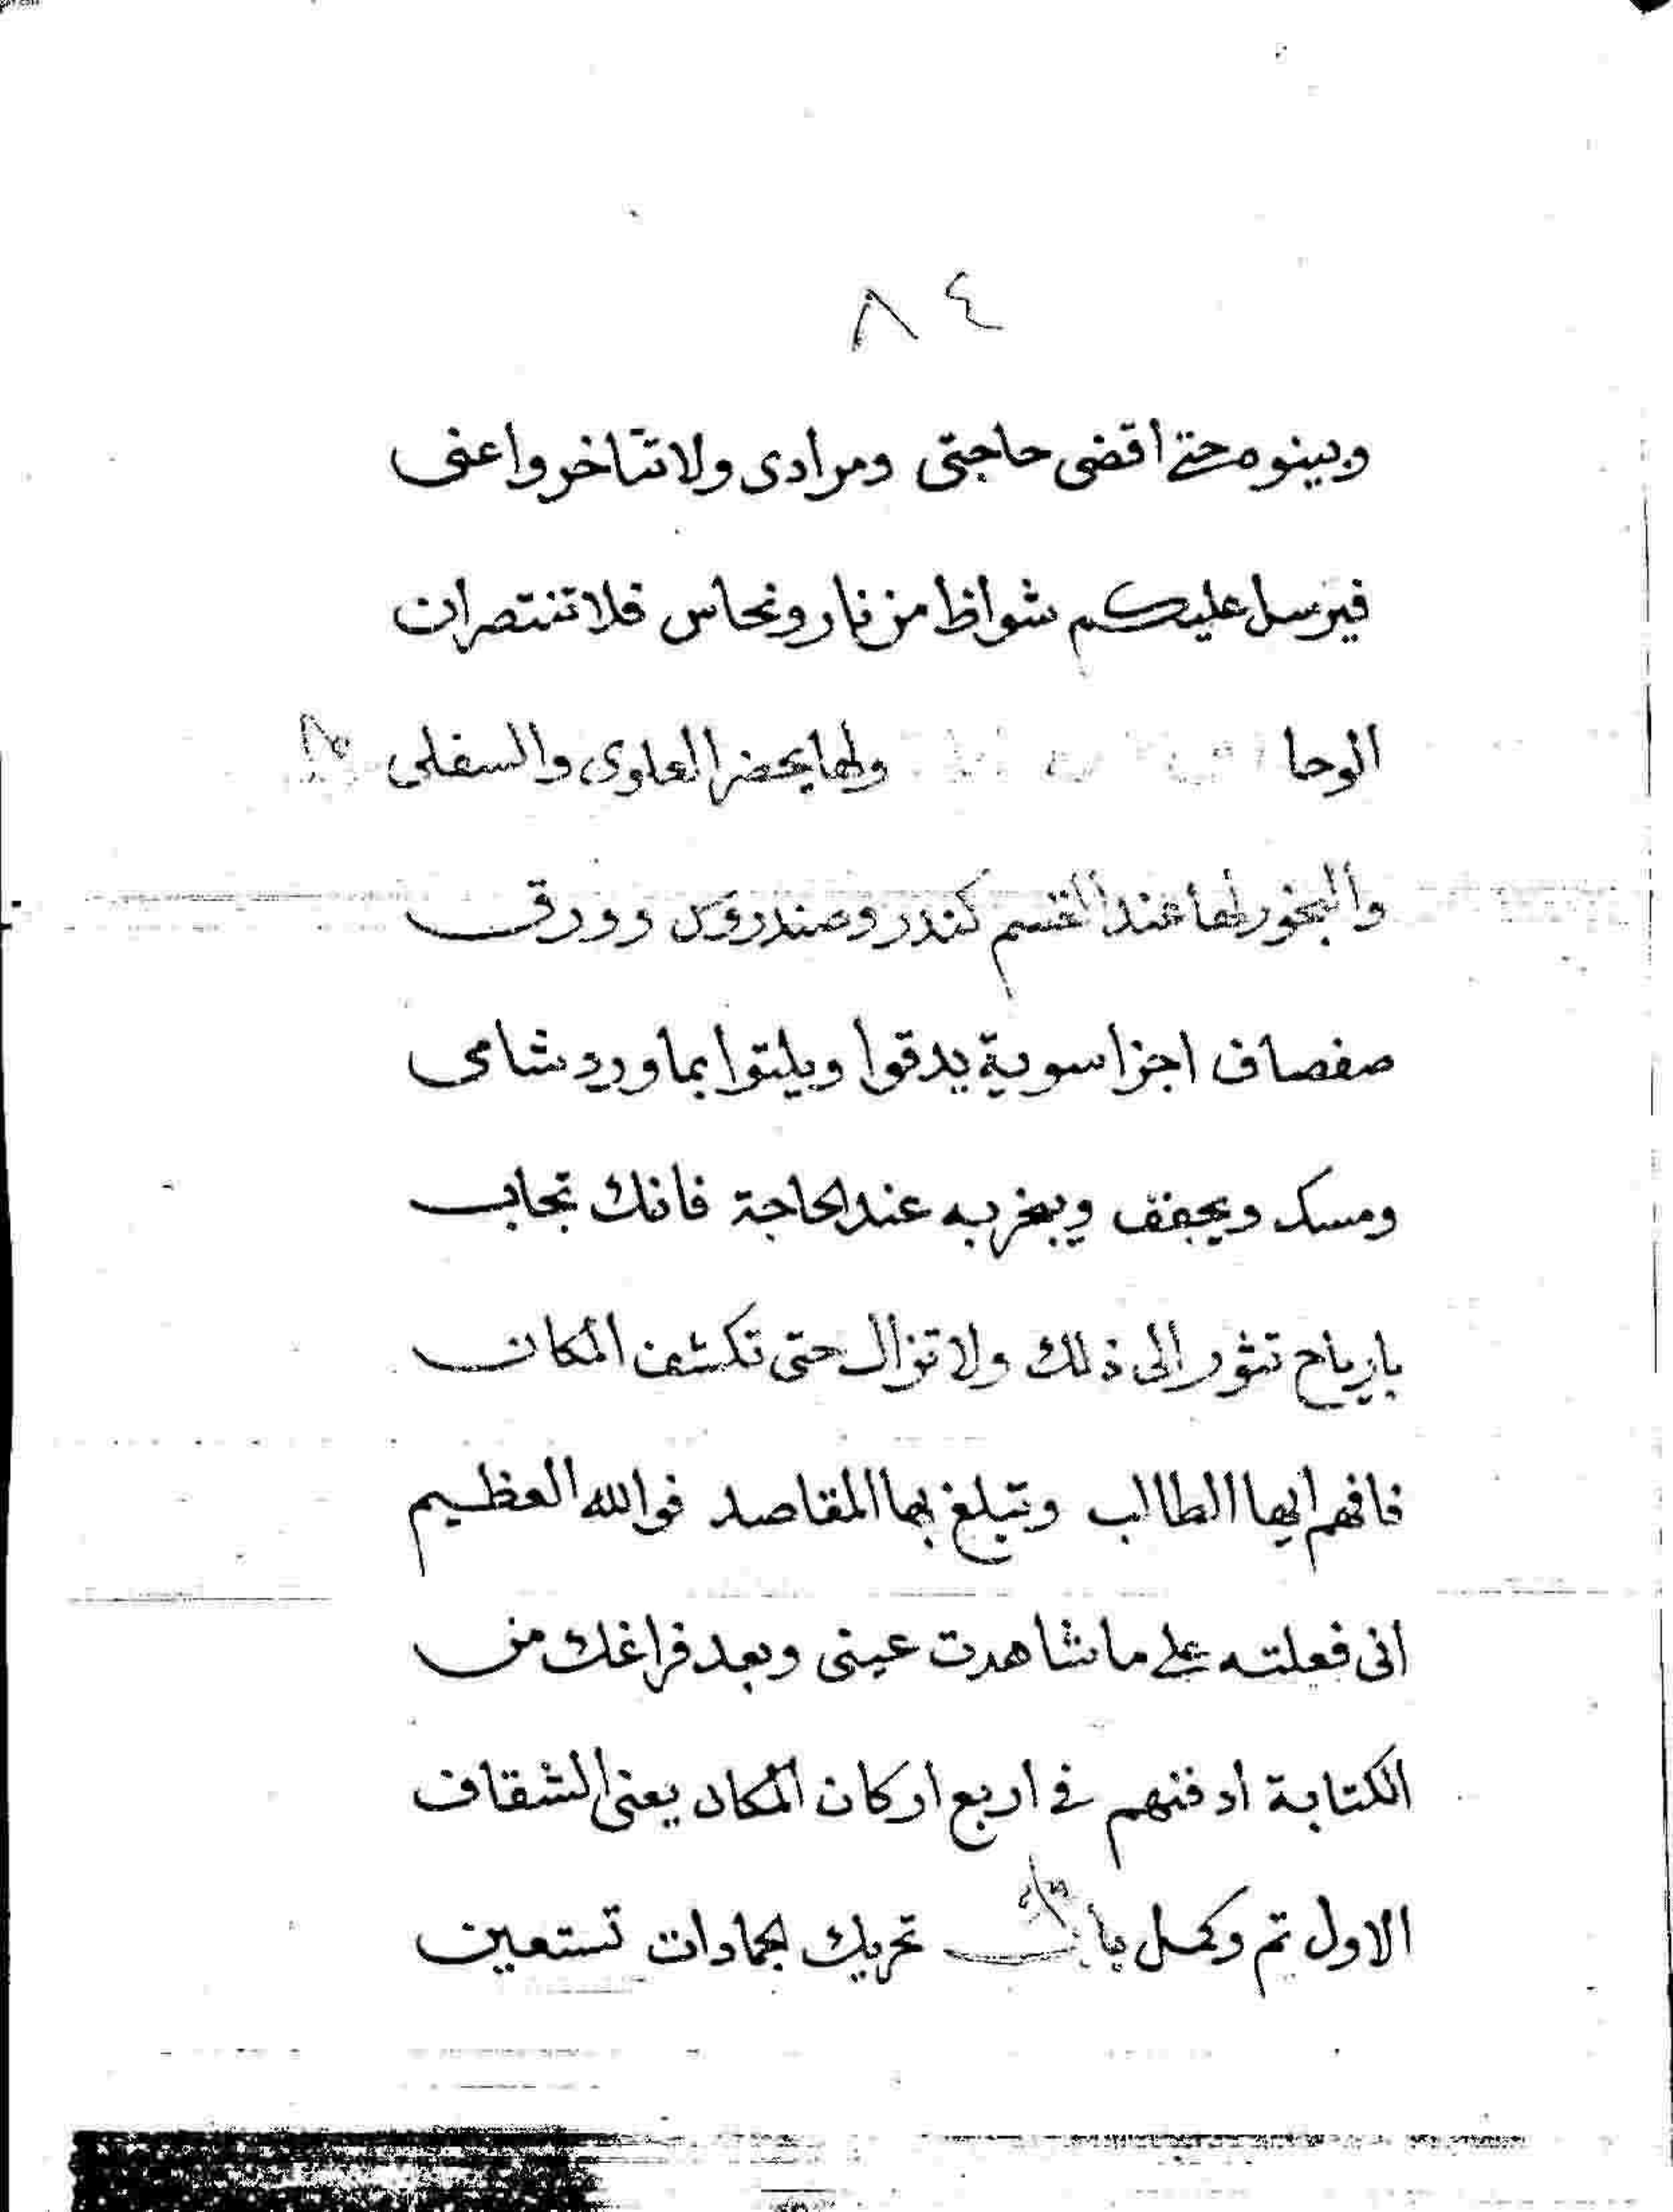 ٨٤
وبينوه حتى اقضى حاجتى ومرادى ولا تتاخروا عنى
فيرسل عليكم شواظ من نار ونحاس فلا تنتصران
الوحا ولها يحضر العلوى والسفلى
والبخور لها عند القسم كندر وصندروس وورق
صفصاف اجزا سوية يدقوا ويلتوا بماورد شامى
ومسك ويجفف ويبخر به عند الحاجة فانك تجاب
بارياح تثور الى ذلك ولا تزال حتى تكشف المكان
فافهم ايها الطالب وتبلغ بها المقاصد فوالله العظيم
انى فعلته على ما شاهدت عينى وبعد فراغك من
الكتابة ادفنهم فى اربع اركان المكان يعنى الشقاف
الاول تم وكمل باب تحريك الجمادات تستعين